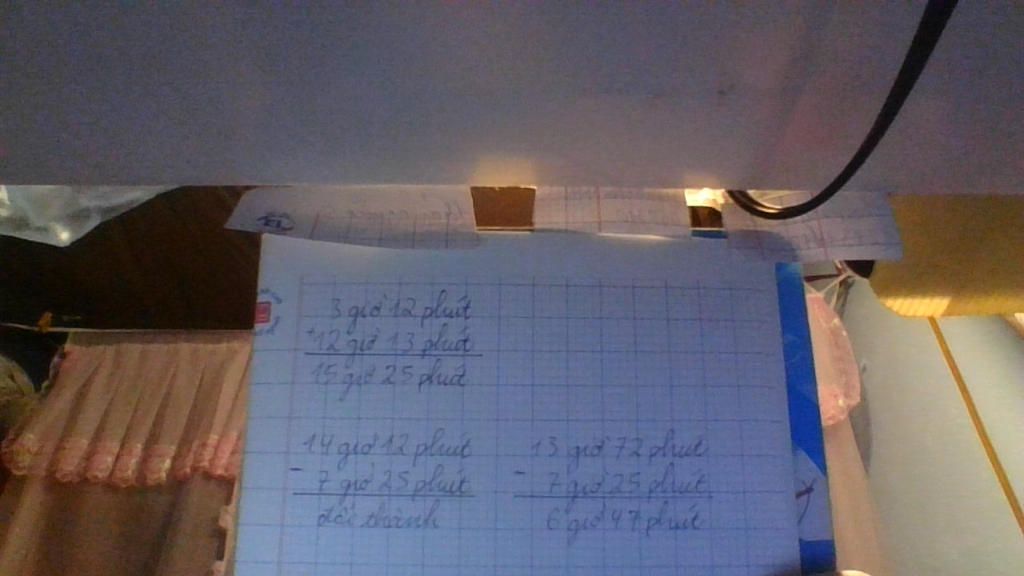 3 giờ 12 phút
+
12 giờ 13 phút
15 giờ 25 phút
14 giờ 12 phút
-
7 giờ 25 phút
đổi thành
13 giờ 72 phút
-
7 giờ 25 phút
6 giờ 47 phút